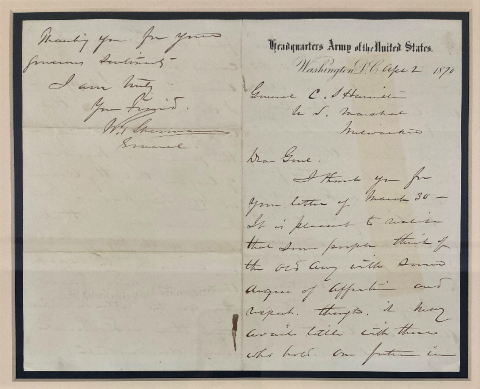 Headquarters Army of the United States.
Washington, D.C. Apl 2 1870
General C. S. Hamilton
U. S. Marshal
Milwaukee
Dear Genl.
I thank you for
your letter of March 30 —
It is pleasant to realize
that some people think of
the old Army with some
degree of affection and
respect. though it may
avail little with those
who hold our future in
Thanking you for your
generous
I am truly
Your Friend.
W. T. Sherman
General